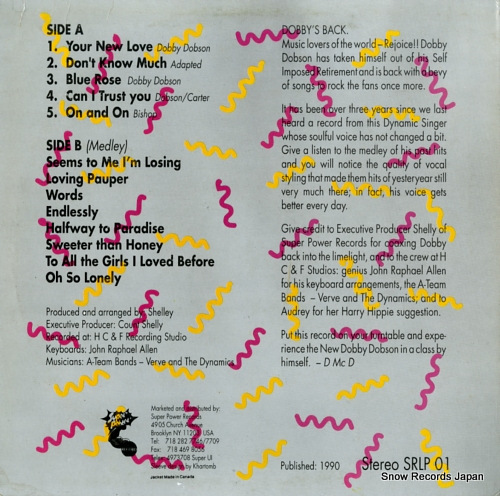 SIDE A
1. Your New Love Dobby Dobson
2. Don't Know Much Adapted
3. Blue Rose Dobby Dobson
4. Can I Trust you Dobson/Carter
5. On and On Bishop
SIDE B (Medley)
Seems to Me I'm Losing
Loving Pauper
Words
Endlessly
Halfway to Paradise
Sweeter than Honey
To All the Girls I Loved Before
Oh So Lonely
Produced and arranged by Shelley
Executive Producer: Court Shelly
Recorded at: H C & F Recording Studio
Keyboards: John Raphael Allen
Musicians: A-Team Bands – Verve and The Dynamics
Marketed and distributed by:
Super Power Records
4905 Church Avenue
Brooklyn NY 11203 USA
Tel: 718 282 7746/7709
Fax: 718 469 8055
Telex: 4973708 Super UI
Sleeve by Khartomb
Jacket Made in Canada
DOBBY'S BACK.
Music lovers of the world – Rejoice!! Dobby
Dobson has taken himself out of his Self
Imposed Retirement and is back with a bevy
of songs to rock the fans once more.
It has been over three years since we last
heard a record from this Dynamic Singer
whose soulful voice has not changed a bit.
Give a listen to the medley of his past hits
and you will notice the quality of vocal
styling that made them hits of yesteryear still
very much there; in fact, his voice gets
better every day.
Give credit to Executive Producer Shelly of
Super Power Records for coaxing Dobby
back into the limelight, and to the crew at H
C & F Studios: genius John Raphael Allen
for his keyboard arrangements, the A-Team
Bands – Verve and The Dynamics, and to
Audrey for her Harry Hippie suggestion.
Put this record on your turntable and expe-
rience the New Dobby Dobson in a class by
himself. – D Mc D
Published: 1990 Stereo SRLP 01
Snow Records Japan